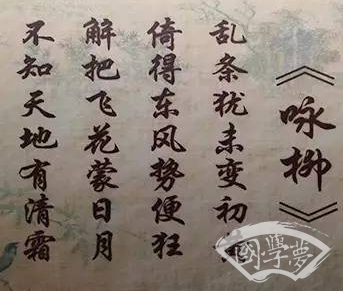 《咏柳》
乱条犹未变初
倚得东风势便狂
解把飞花蒙日月
不知天地有清霜
國學夢